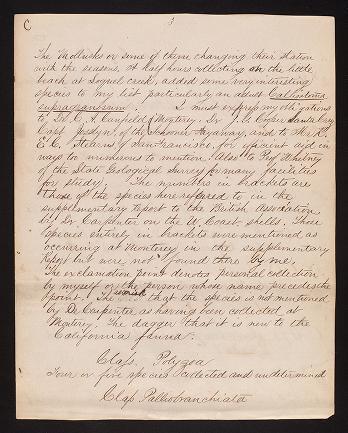 C
3
The Mollusks or some of them changing their station
with the seasons, A half hours collecting on the little
beach at Soquel creek, added some very interesting
species to my list particularly an adust Calliostoma
supragranosum. I must express my obligations
to Dr. C. A. Canfield, Monterey. Dr. J. G. Cooper Santa Cruz
Capt. of the Schooner and to Mr. R.
E. C. Stearns of San Francisco, for efficient aid in
ways too numerous to mention. Also to Prof Whitney
of the State Geological Survey for many facilities
for study. The numbers in brackets are
those of the species here referred to in the
supplementary report to the British Association
by Dr Carpenter on the W. Coast shells. Those
species entirely in brackets were mentioned as
occurring at Monterey in the supplementary
Report but were not found there by me.
The exclamation point denotes personal collection
by myself or the person whose name precedes the
point. The that the species is not mentioned
by Dr Carpenter as having been collected at
Monterey. The dagger that it is new to the
California fauna.
Class, Polyzoa
Four or five species collected and undetermined
Class Palliobranchiata